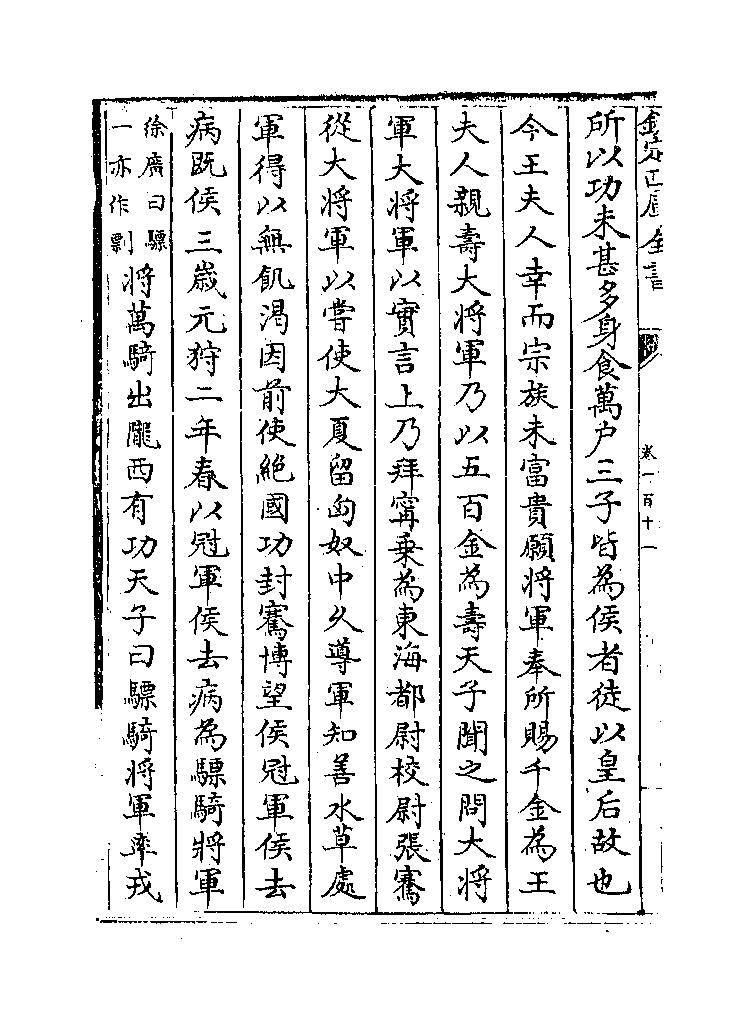 欽定四庫全書
卷一百十一
所以功未甚多身食萬户三子皆為侯者徒以皇后故也
今王夫人幸而宗族未富貴願將軍奉所賜千金為王
夫人親壽大將軍乃以五百金為壽天子聞之問大將
軍大將軍以實言上乃拜甯乗為東海都尉校尉張騫
從大將軍以嘗使大夏留匈奴中乆導軍知善水草處
軍得以無飢渴因前使絶國功封騫博望侯冠軍侯去
病既侯三嵗元狩二年春以冠軍侯去病為驃騎將軍
徐廣曰驃
一亦作剽
將萬騎出隴西有功天子曰驃騎將軍率戎